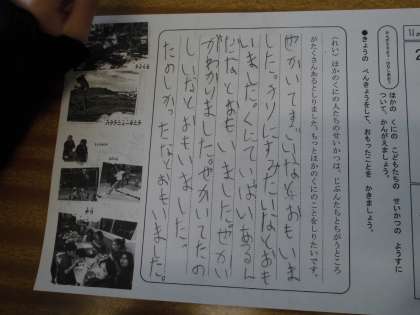 ほかの くにの こどもたちの せいかつの ようすに
ついて、かんがえましょう。
●きょうの べんきょうをして、おもったことを かきましょう。
(れい) ほかのくにの人たちのせいかつは、じぶんたちとちがうところ
がたくさんあるとしりました。もっとほかのくにのことをしりたいです。
せかいてすごいなとおもいま
した。にすみたいなとおも
いました。くにていぱいあるん
だなとおもいました。せかい
がわかりました。せかいてたの
しいなとおもいました。
たのしかったなとおもいました。
パプアニューギニア